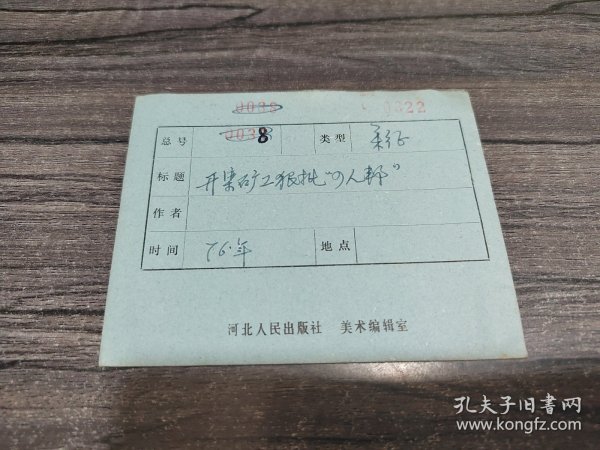 0039 0322
总号 0038 类型
标题 开滦矿工狠批“四人帮”
作者
时间 76.年 地点
河北人民出版社 美术编辑室
孔夫子旧书网
www.kongfz.com